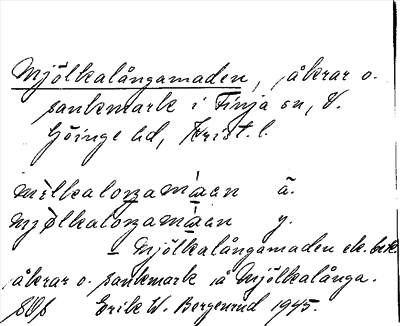 Mjölkalångamaden, åkrar o.
sankmark i Finja sn, V.
Göinge hd, Krist. l.
milkaloŋamàan ä.
mjølkaloŋamàan y.
– Mjölkalångamaden ek. bet.
åkrar o. sankmark å Mjölkalånga.
Erik W. Bergenrud 1945.